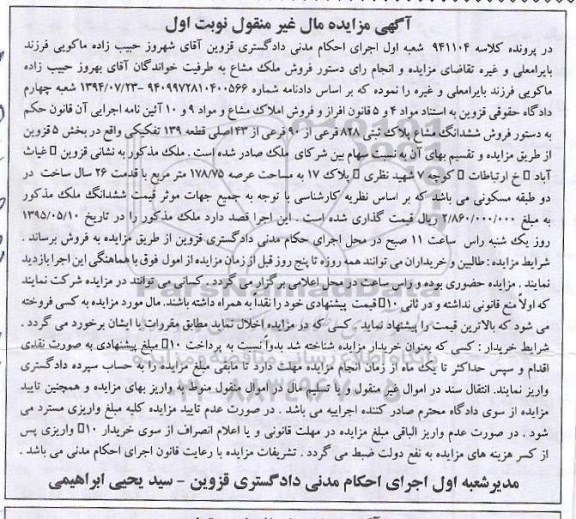 آگهی مزایده مال غیر منقول نوبت اول
در پرونده کلاسه ۹۴۱۱۰۴ شعبه اول اجرای احکام مدنی دادگستری قزوین آقای شهروز حبیب زاده ماکویی فرزند
بایرامعلی و غیره تقاضای مزایده و انجام رای دستور فروش ملک مشاع به طرفیت خواندگان آقای بهروز حبیب زاده
ماکویی فرزند بایرامعلی و غیره را نموده که بر اساس دادنامه شماره ۹۴۰۹۹۷۲۸۱۰۴۰۰۵۶۶ -۱۳۹۴/۰۷/۲۳ شعبه چهارم
دادگاه حقوقی قزوین به استناد مواد ۴ و ۵ قانون افراز و فروش املاک مشاع و مواد ۹ و ۱۰ آئین نامه اجرایی آن قانون حکم
به دستور فروش ششدانگ مشاع پلاک ثبتی ۸۲۸ فرعی از ۹۰ فرعی از ۴۳ اصلی قطعه ۱۳۹ تفکیکی واقع در بخش ۵ قزوین
از طریق مزایده و تقسیم بهای آن به نسبت سهام بین شرکای ملک صادر شده است . ملک مذکور به نشانی قزوین  غیاث
آباد  خ ارتباطات  کوچه ۷ شهید نظری  پلاک ۱۷ به مساحت عرصه ۱۷۸/۷۵ متر مربع با قدمت ۲۶ سال ساخت در
دو طبقه مسکونی می باشد که بر اساس نظریه کارشناسی با توجه به جمیع جهات موثر قیمت ششدانگ ملک مذکور
به مبلغ ۲/۸۶۰/۰۰۰/۰۰۰ ریال قیمت گذاری شده است . این اجرا قصد دارد ملک مذکور را در تاریخ ۱۳۹۵/۰۵/۱۰
روز یک شنبه راس ساعت ۱۱ صبح در محل اجرای حکام مدنی دادگستری قزوین از طریق مزایده به فروش برساند .
شرایط مزایده : طالبین و خریداران می توانند همه روزه تا پنج روز قبل از زمان مزایده از اموال فوق با هماهنگی این اجرا بازدید
نمایند . مزایده حضوری بوده و راس ساعت در محل اعلامی برگزار می گردد . کسانی می توانند در مزایده شرکت نمایند
که اولاً منع قانونی نداشته و در ثانی ۱۰ قیمت پیشنهادی خود را نقداً به همراه داشته باشند. مال مورد مزایده به کسی فروخته
می شود که بالاترین قیمت را پیشنهاد نماید . کسی که در مزایده اخلال نماید مطابق مقررات با ایشان برخورد می گردد .
شرایط خریدار : کسی که بعنوان خریدار مزایده شناخته شد بدواً نسبت به پرداخت ۱۰ مبلغ پیشنهادی به صورت نقدی
اقدام و سپس حداکثر تا یک ماه از زمان انجام مزایده مهلت دارد تا مابقی مبلغ مزایده را به حساب سپرده دادگستری
واریز نمایند. انتقال سند در اموال غیر منقول و یا تسلیم مال در اموال منقول منوط به واریز بهای مزایده و همچنین تایید
مزایده از سوی دادگاه محترم صادر کننده اجراییه می باشد . در صورت عدم تایید مزایده کلیه مبلغ واریزی مسترد می
شود . در صورت عدم واریز الباقی مبلغ مزایده در مهلت قانونی و یا اعلام انصراف از سوی خریدار ۱۰ واریزی پس
از کسر هزینه های مزایده به نفع دولت ضبط می گردد . تشریفات مزایده با رعایت قانون اجرای احکام مدنی می باشد .
مدیرشعبه اول اجرای احکام مدنی دادگستری قزوین - سید یحیی ابراهیمی